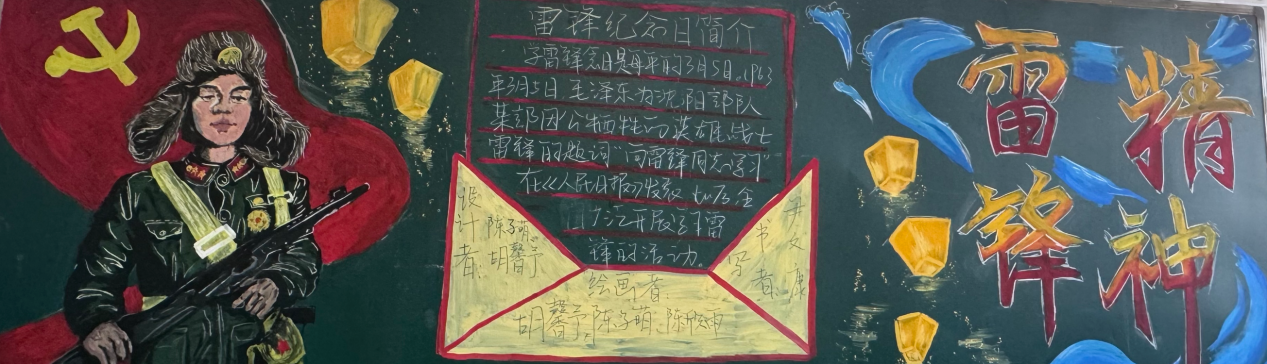 雷锋纪念日简介
学雷锋念日是每年的3月5日。1963
年3月5日,毛泽东为沈阳部队
某部因公牺牲的英雄战士
雷锋的题词“向雷锋同志学习”
在《人民日报》发表
开展了学雷
锋的活动。
设计者:
陈子萌
胡馨予
书写者:
绘画者
胡馨予 陈子萌
雷锋
精神